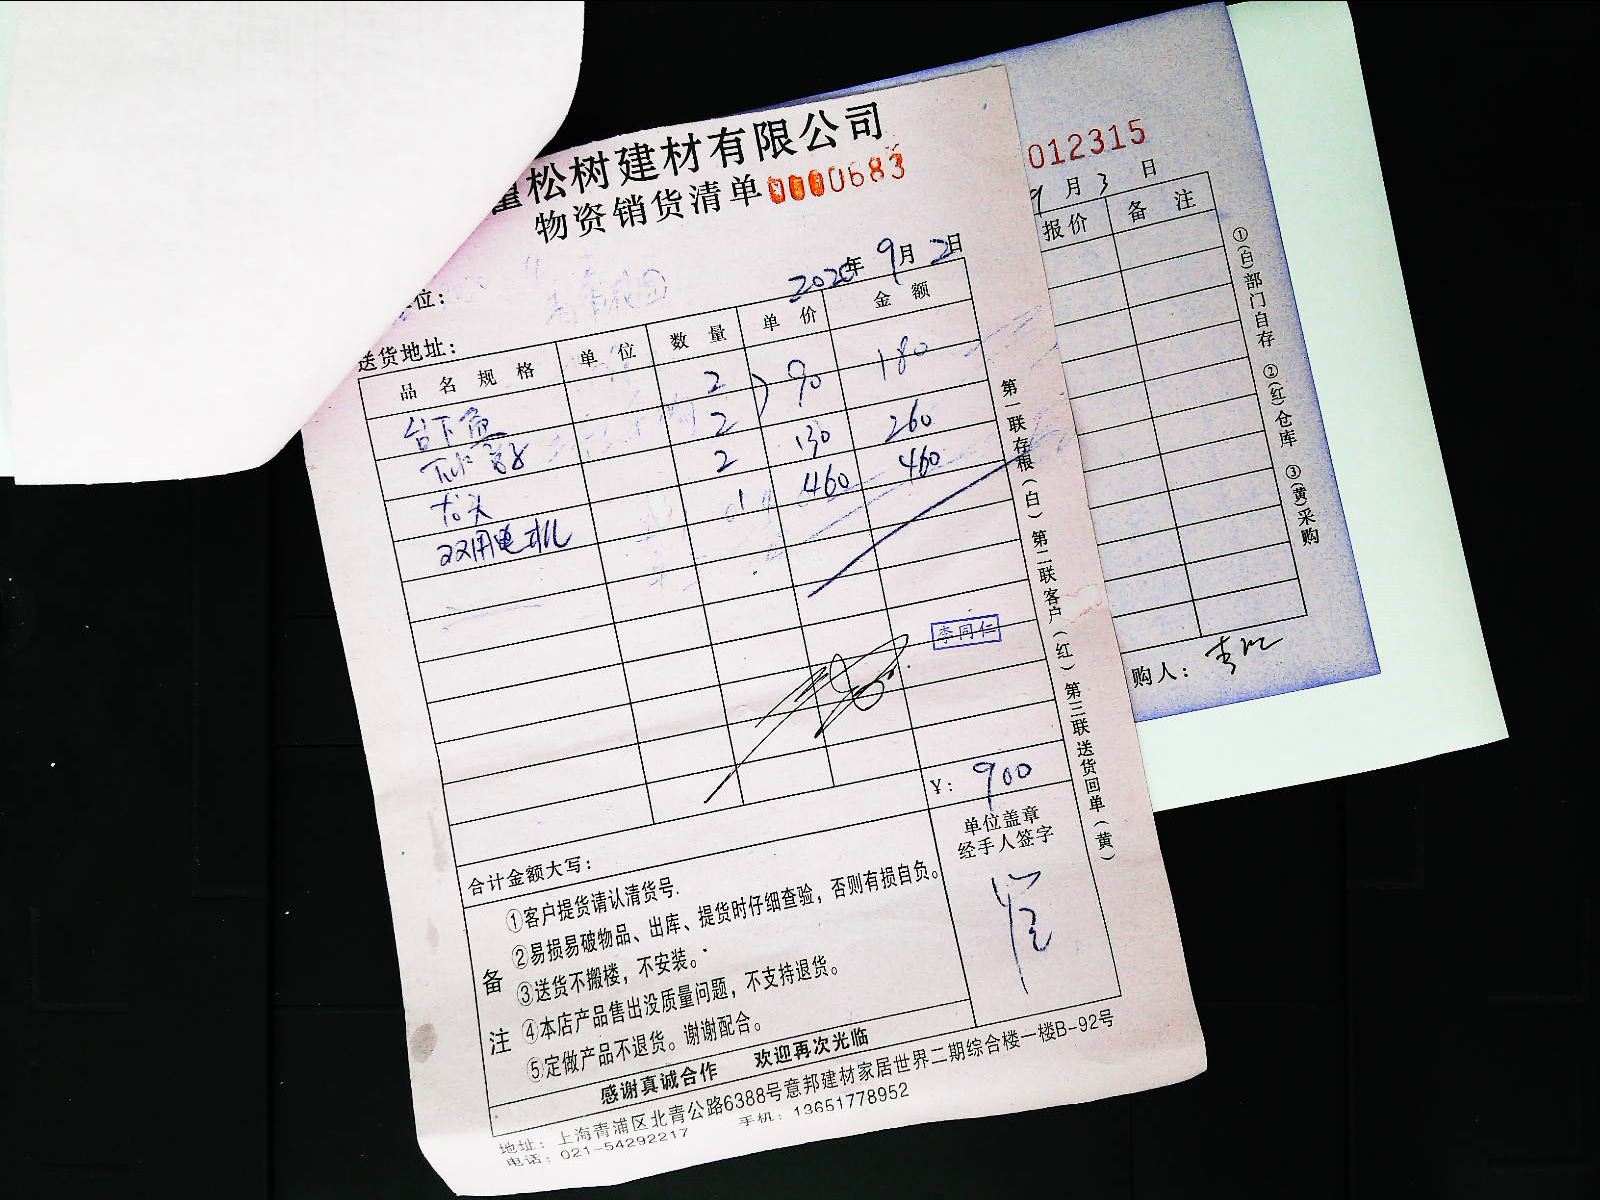 松树建材有限公司
物资销货清单 0000683
位:
2020年9月2日
送货地址:
品名规格 单位 数量 单价 金额
台下盆 2 90 180
2
龙头 2 130 260
双用电机 1 460 460
李同仁
¥: 900
合计金额大写:
单位盖章
经手人签字
备注
①客户提货请认清货号.
②易损易破物品、出库、提货时仔细查验，否则有损自负。
③送货不搬楼，不安装。
④本店产品售出没质量问题，不支持退货。
⑤定做产品不退货。谢谢配合。
感谢真诚合作 欢迎再次光临
地址: 上海青浦区北青公路6388号意邦建材家居世界二期综合楼一楼B-92号
电话: 021-54292217 手机: 13651778952
第一联存根(白) 第二联客户(红) 第三联送货回单(黄)
012315
9月3日
报价 备注
①(白)部门自存 ②(红)仓库 ③(黄)采购
购人: